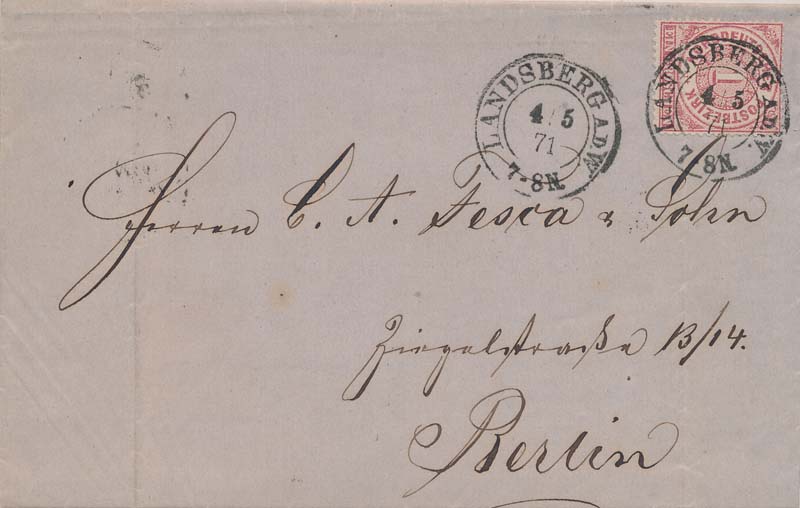 LANDSBERG A.D.W.
4/5
71
7-8N.
NORDDEUTSCHER
POSTBEZIRK
1
LANDSBERG A.D.W.
4 5
71
7-8N.
Herren C. A. Fesca & Sohn
Ziegelstraße 13/14.
Berlin